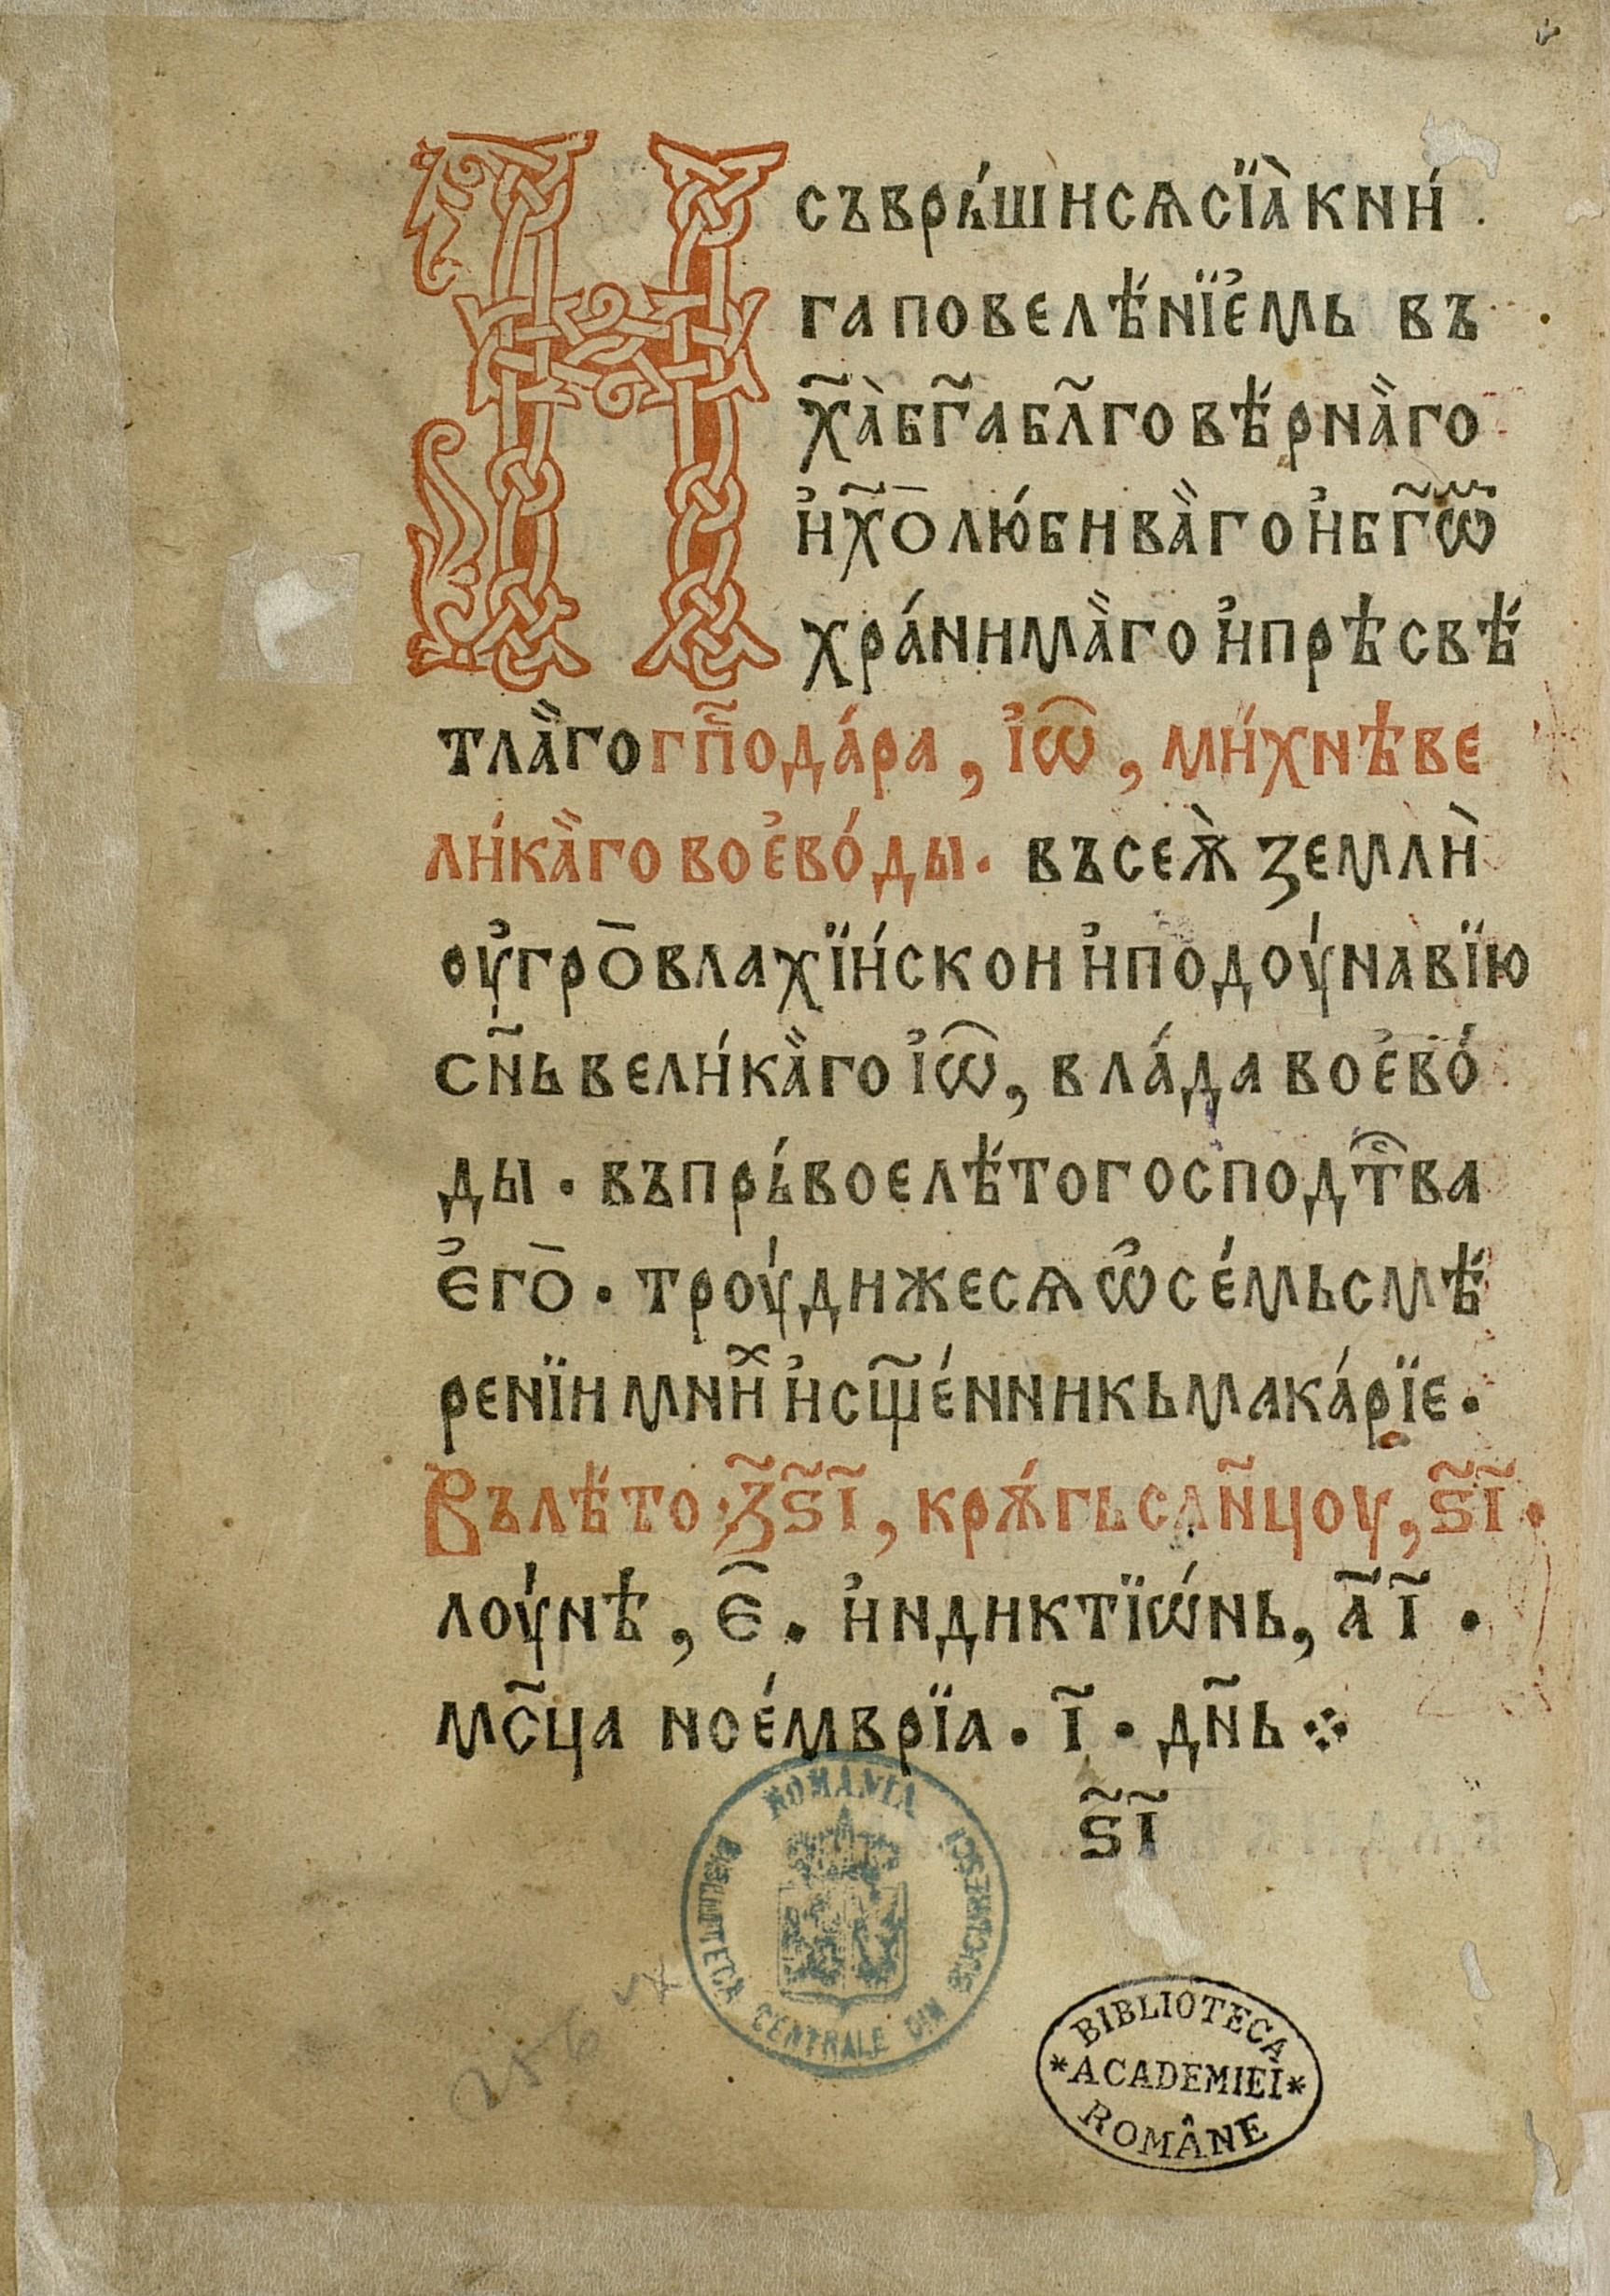 И съврⸯши сѧ сїа̀ кни́
га повелѣ́нїе҆мь въ
х҃а̀ б҃га бл҃говѣ́рна̏го
и҆ х҃олю́бива̏го и҆ бг҃ѡ
хра́нима̏го и҆ прѣсвѣ́
тла̏го гп҃ода́ра, і҆ѡ̑, ми́хнѣ ве
ли́ка̏го вое҆во́ды. въсеѧ̀ ꙁемлѝ
оу҆гро̄влахїи́скои и҆ подоу́навїю
сн҃ь вели́ка̏го і҆ѡ̑, вла́да вое҆во́
ды. въ прь́вое лѣ́то господтⷭ҇ва
е҆го̄. троу́ди же сѧ ѡ҆ се́мь смѣ
ренїи мниⷯ и҆ сщ҃е́нникь мака́рїе.
Въ лѣ́то ·ꙁ҃ѕ҃і҃, крѫ́гь сл҃нцоу, ѕ҃і҃.
лоу́нѣ, є҃. и҆ндиктїѡ́нь, а҃і҃.
мс҃ца ное́мврїа. і҃. дн҃ь
ѕ҃і҃
ROMANIA
BIBLIOTECA CENTRALE DIN BUCURESCI
256
BIBLIOTECA
*ACADEMIEI*
ROMÂNE